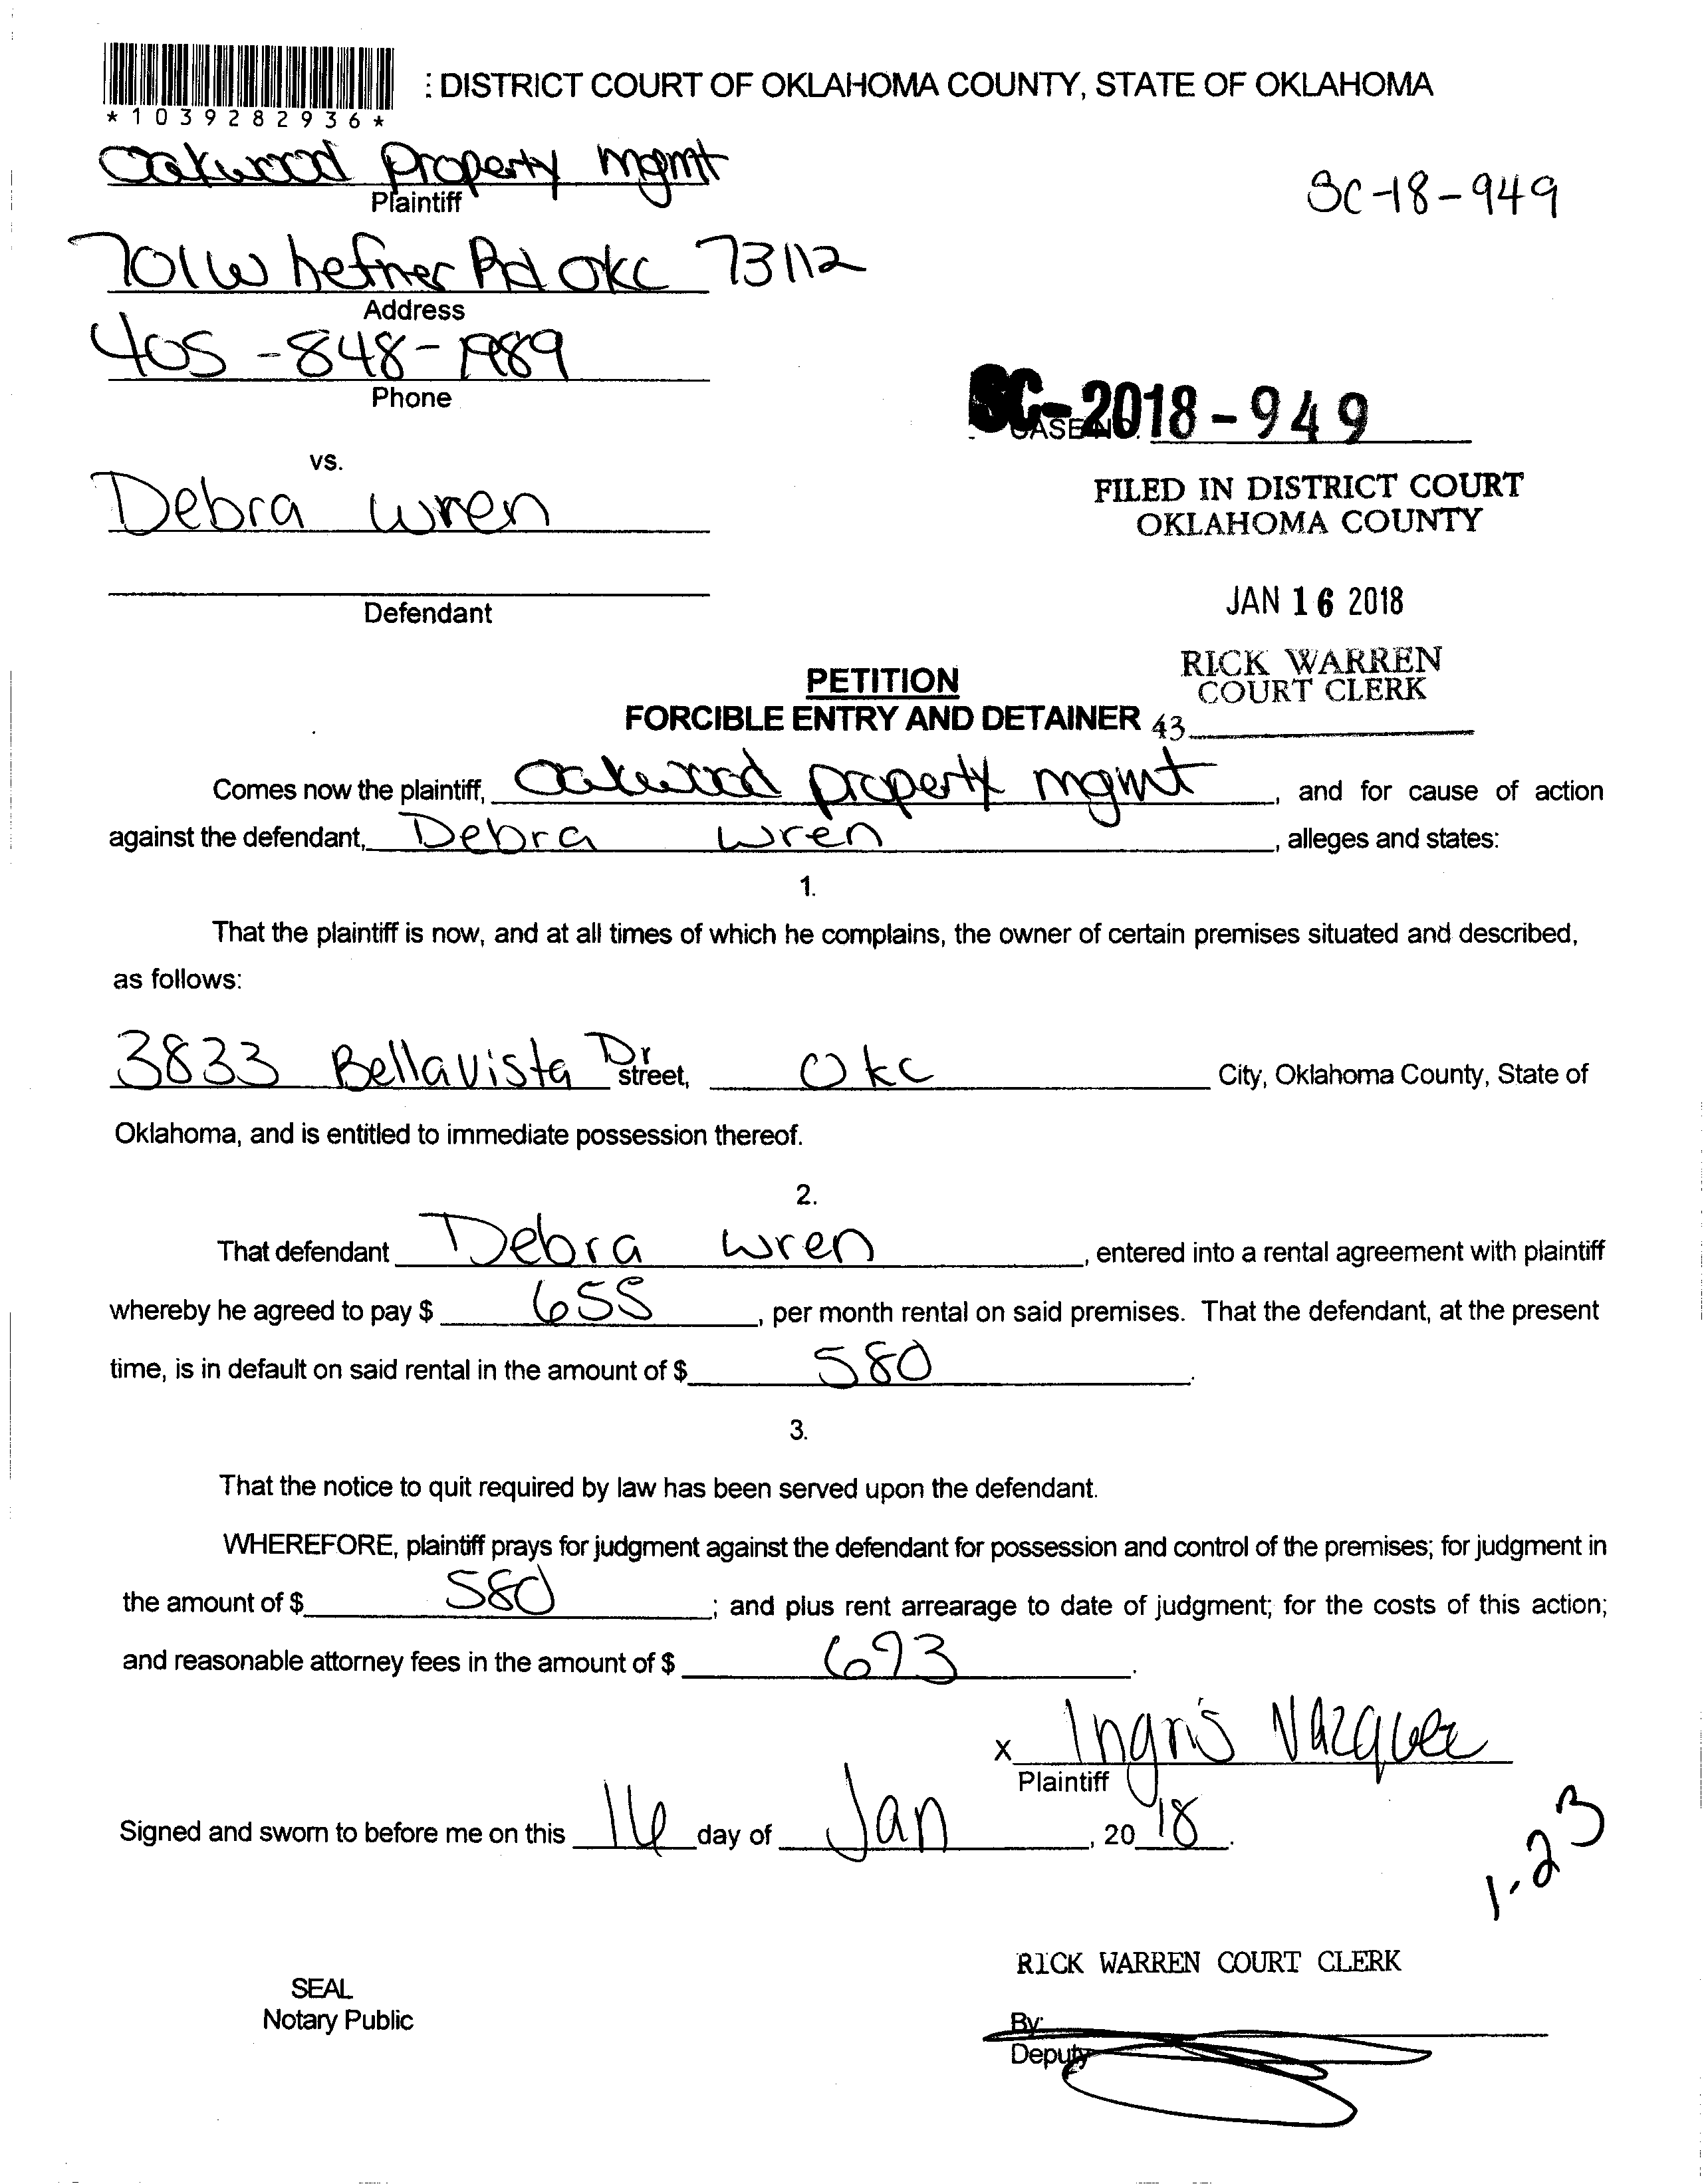 : DISTRICT COURT OF OKLAHOMA COUNTY, STATE OF OKLAHOMA
*1039282936*
Oakwood Property mgmt
Plaintiff
SC-18-949
701 W hefner Rd OKC 73112
Address
405-848-1989
Phone
SC-2018-949
CASE NO.
vs.
Debra Wren
FILED IN DISTRICT COURT
OKLAHOMA COUNTY
Defendant
JAN 16 2018
RICK WARREN
COURT CLERK
PETITION
FORCIBLE ENTRY AND DETAINER
43
Comes now the plaintiff, Oakwood property mgmt, and for cause of action
against the defendant, Debra Wren, alleges and states:
1.
That the plaintiff is now, and at all times of which he complains, the owner of certain premises situated and described,
as follows:
3833 Bellavista Dr street, Okc City, Oklahoma County, State of
Oklahoma, and is entitled to immediate possession thereof.
2.
That defendant Debra Wren, entered into a rental agreement with plaintiff
whereby he agreed to pay $ 655, per month rental on said premises. That the defendant, at the present
time, is in default on said rental in the amount of $ 580.
3.
That the notice to quit required by law has been served upon the defendant.
WHEREFORE, plaintiff prays for judgment against the defendant for possession and control of the premises; for judgment in
the amount of $ 580; and plus rent arrearage to date of judgment; for the costs of this action;
and reasonable attorney fees in the amount of $ 693.
x Ingris Vazquez
Plaintiff
Signed and sworn to before me on this 16 day of Jan, 20 18.
1-23
RICK WARREN COURT CLERK
SEAL
Notary Public
By:
Deputy